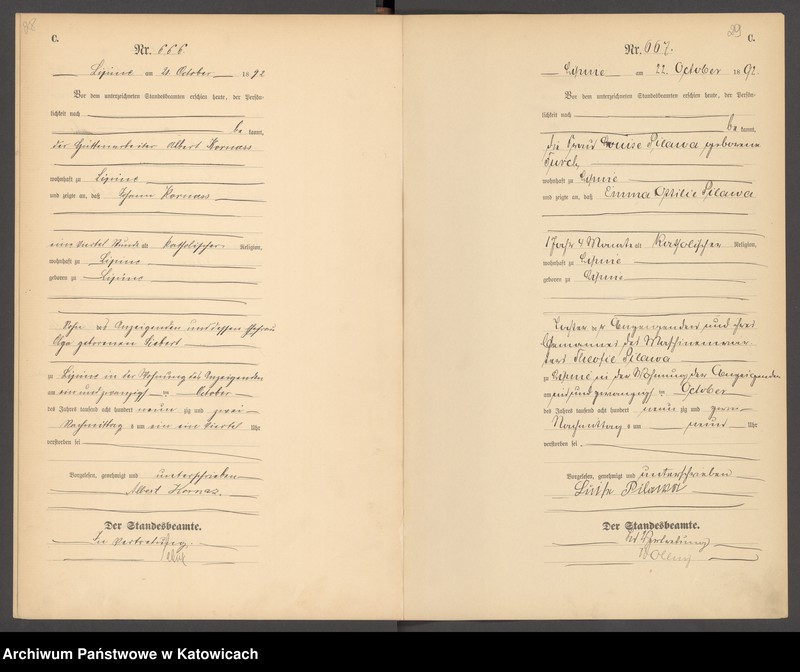 C.
Nr. 666
Lipine am 21. October 1892
Vor dem unterzeichneten Standesbeamten erschien heute, der Persön-
lichkeit nach
be kannt,
der Hüttenarbeiter Albert Kornass
wohnhaft zu Lipine
und zeigte an, daß Johann Kornass
eine viertel Stunde alt katholischer Religion,
wohnhaft zu Lipine
geboren zu Lipine
Sohn des Anzeigenden und dessen Ehefrau
Olga geborenen Siebert
zu Lipine in der Wohnung des Anzeigenden
am ein und zwanzigsten October
des Jahres tausend acht hundert neun zig und zwei
Nachmittag s um ein ein viertel Uhr
verstorben sei
Vorgelesen, genehmigt und unterschrieben
Albert Kornas.
Der Standesbeamte.
In Vertretung.
29
C.
Nr. 667.
Lipine am 22. October 1892.
Vor dem unterzeichneten Standesbeamten erschien heute, der Persön-
lichkeit nach
be kannt,
die Frau Louise Pilawa geborene
wohnhaft zu Lipine
und zeigte an, daß Emma Ottilie Pilawa
1 Jahr 4 Monate alt katholischer Religion,
wohnhaft zu Lipine
geboren zu Lipine
Tochter der Anzeigenden und ihres
Ehemannes des Maschinenwär-
ters Theofil Pilawa
zu Lipine in der Wohnung der Anzeigenden
am ein und zwanzigsten October
des Jahres tausend acht hundert neun zig und zwei
Nachmittag s um neun Uhr
verstorben sei.
Vorgelesen, genehmigt und unterschrieben
Luise Pilawa
Der Standesbeamte.
In Vertretung
Archiwum Państwowe w Katowicach